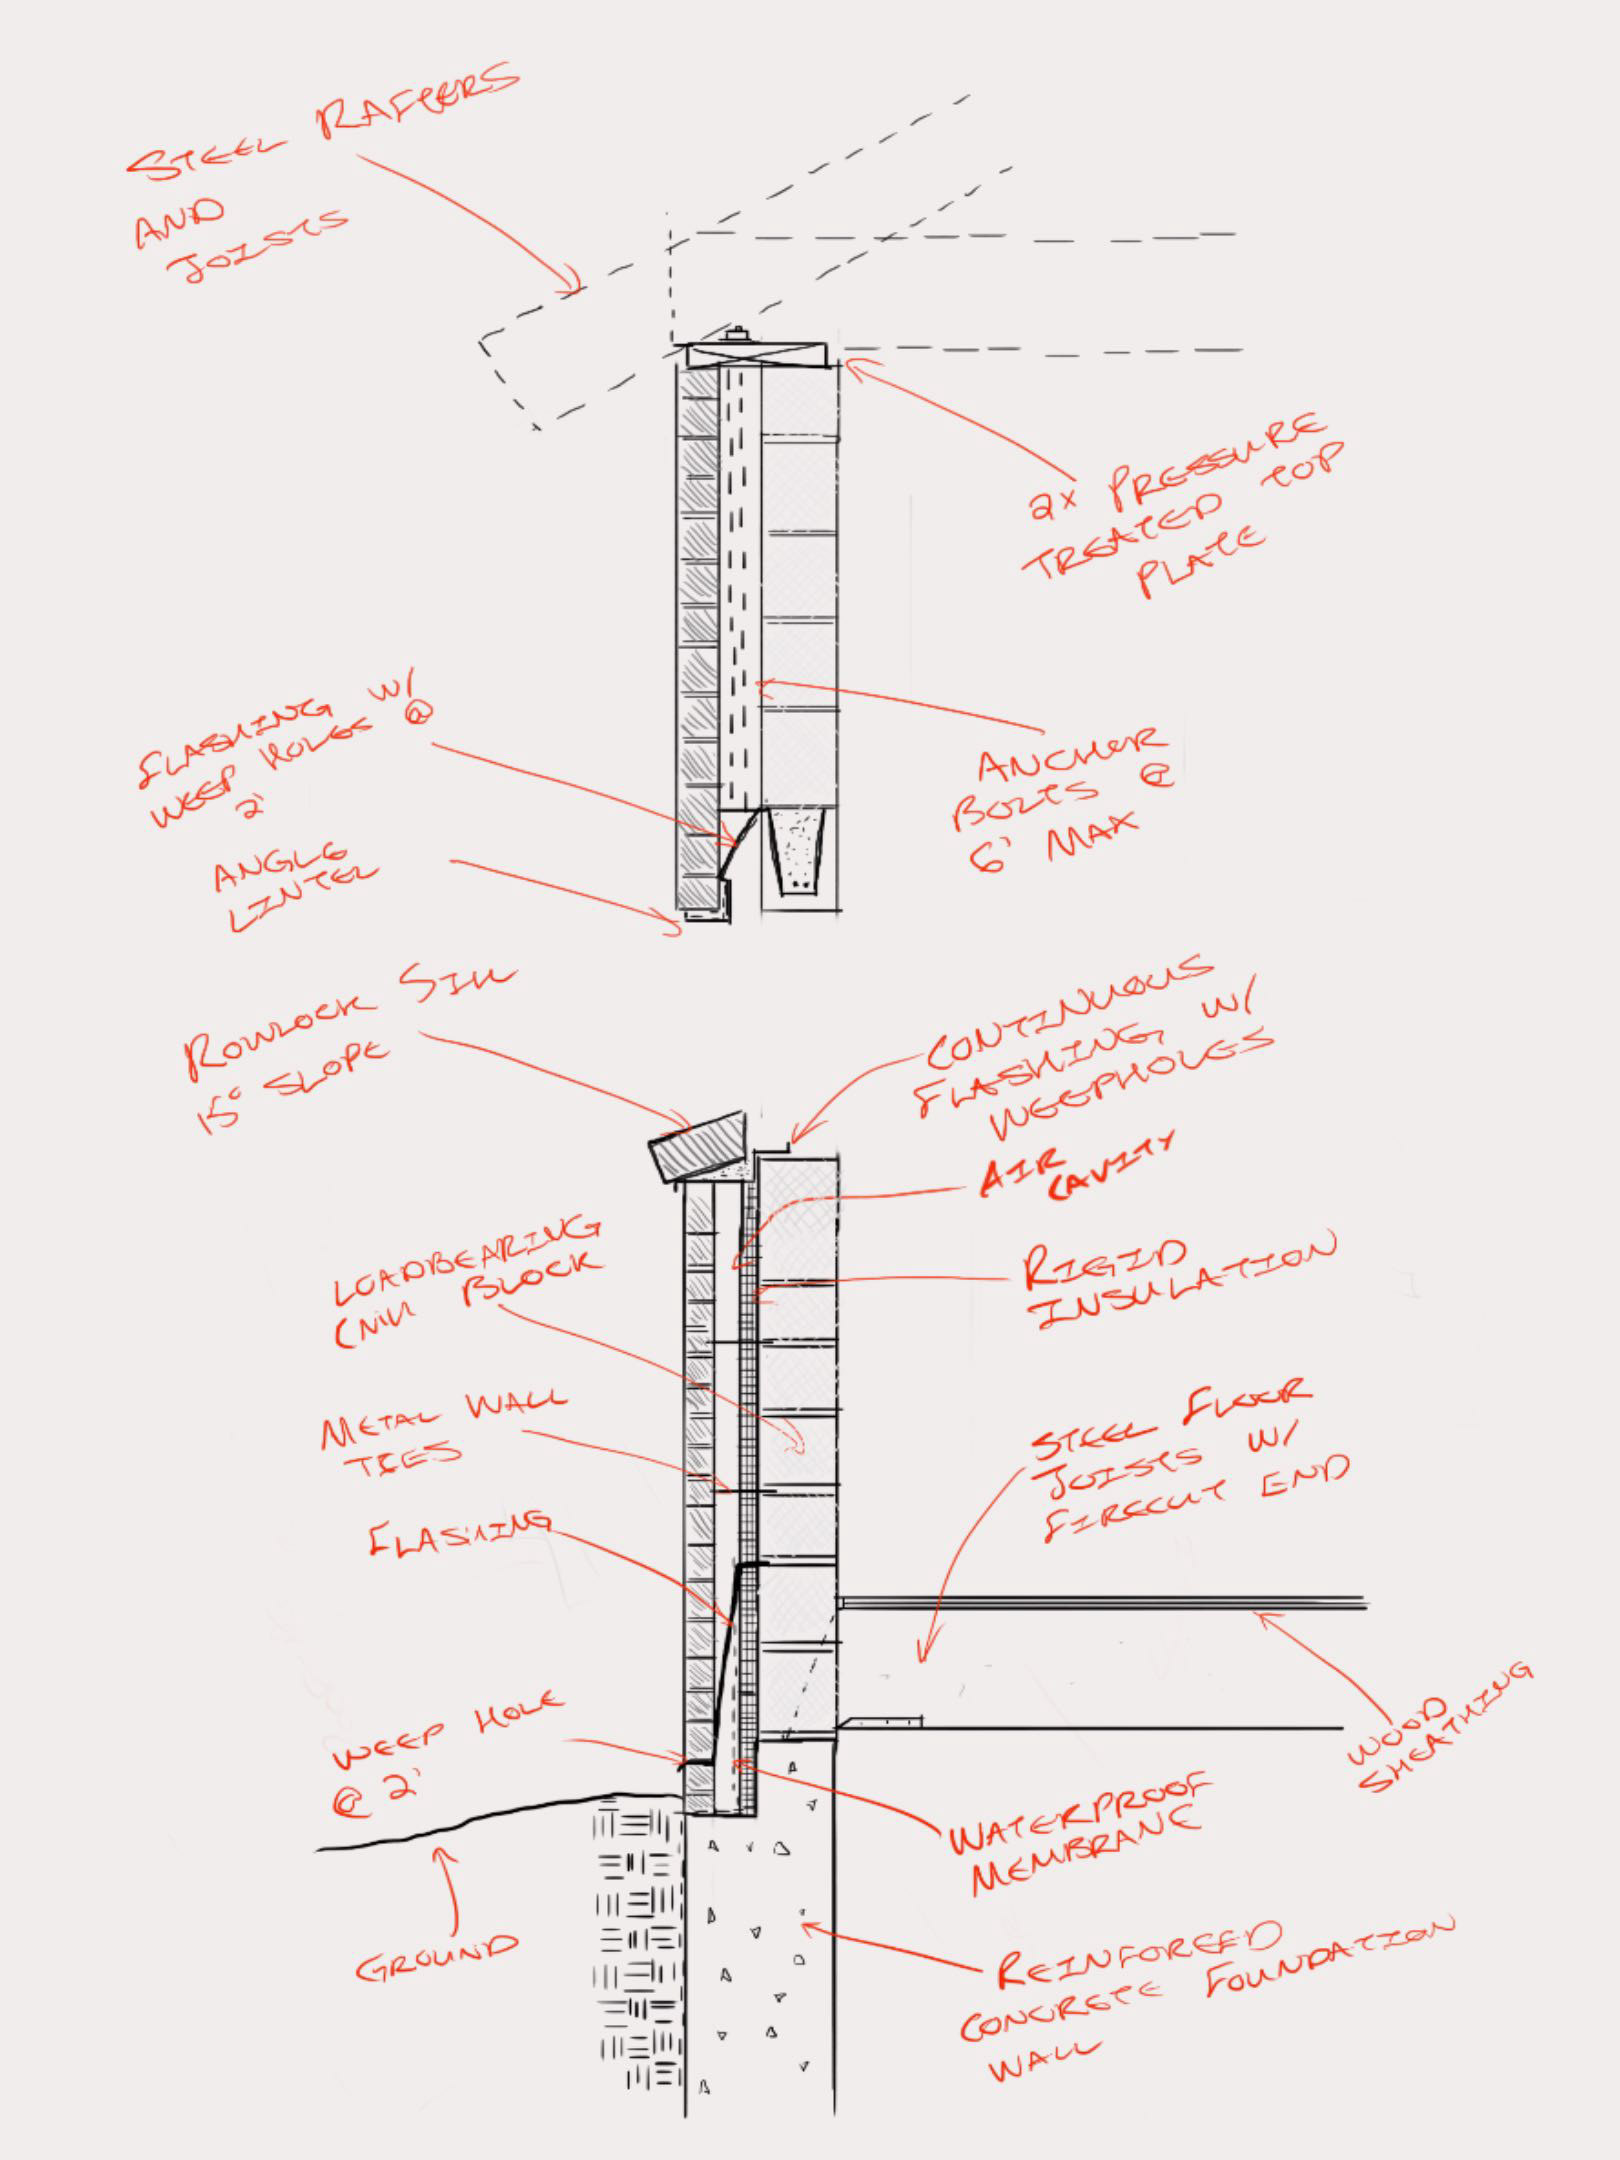 STEEL RAFTERS
AND
JOISTS
2x PRESSURE
TREATED TOP
PLATE
FLASHING W/
WEEP HOLES @
2'
ANCHOR
BOLTS @
6' MAX
ANGLE
LINTEL
ROWLOCK SILL
15° SLOPE
CONTINUOUS
FLASHING W/
WEEPHOLES
AIR
CAVITY
LOADBEARING
CMU BLOCK
RIGID
INSULATION
METAL WALL
TIES
STEEL FLOOR
JOISTS W/
FIRECUT END
FLASHING
WEEP HOLE
@ 2'
WOOD
SHEATHING
WATERPROOF
MEMBRANE
GROUND
REINFORCED
CONCRETE FOUNDATION
WALL